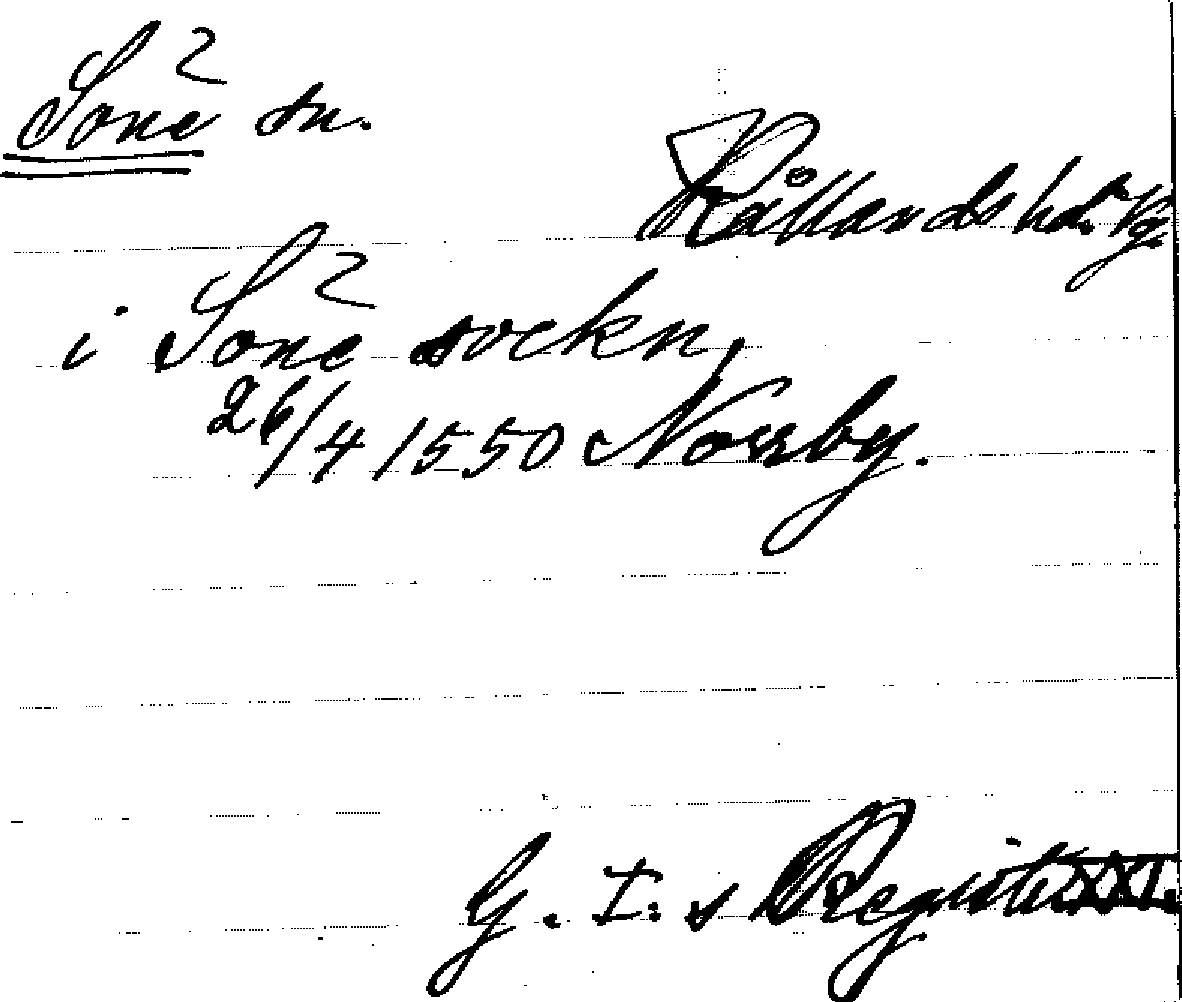 Sone sn.
Kållands hd. Vg.
i Sone sockn,
26/4 1550 Norrby.
G. I:s Registr. XXI.